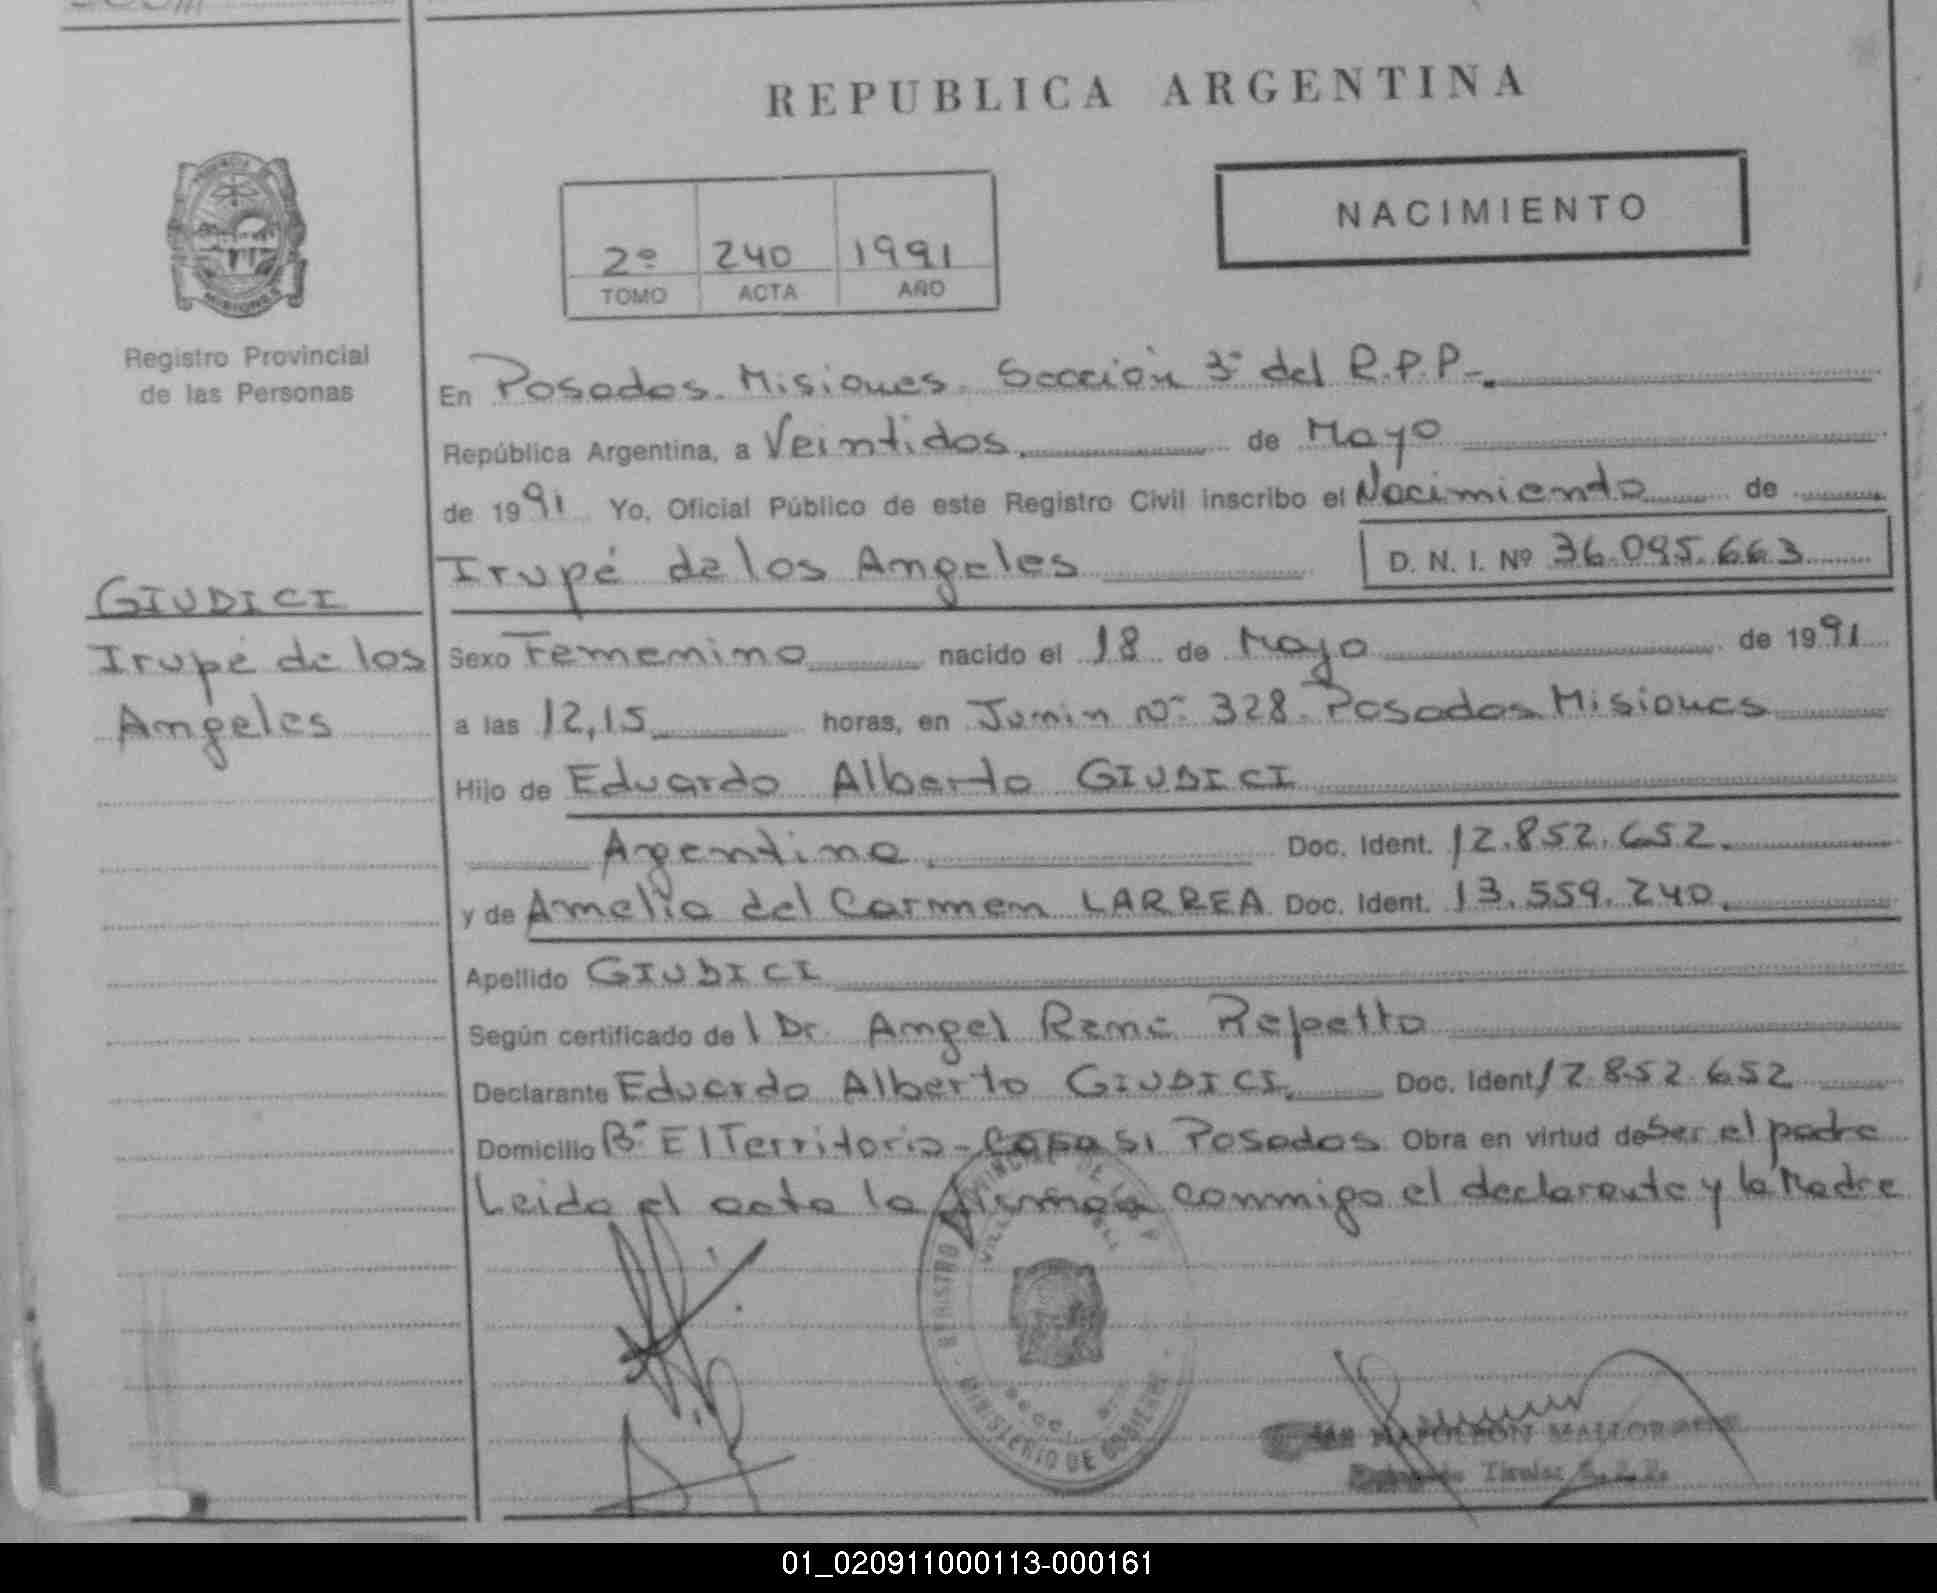 REPUBLICA ARGENTINA
NACIMIENTO
2º 240 1991
TOMO ACTA AÑO
MISIONES
Registro Provincial
de las Personas
En Posadas. Misiones. Sección 3ª del R.P.P.-
República Argentina, a Veintidos de Mayo
de 1991 Yo, Oficial Público de este Registro Civil inscribo el Nacimiento de
Irupé de los Angeles D. N. I. Nº 36.095.663
GIUDICI
Irupé de los
Angeles
Sexo Femenino nacido el 18 de Mayo de 1991
a las 12,15 horas, en Junin Nº 328. Posadas Misiones
Hijo de Eduardo Alberto GIUDICI
Argentina. Doc. Ident. 12.852.652.
y de Amelia del Carmen LARREA Doc. Ident. 13.559.240.
Apellido GIUDICI
Según certificado de l Dr. Angel René Repetto
Declarante Eduardo Alberto GIUDICI. Doc. Ident 12.852.652
Domicilio Bº El Territorio - Casa 51 Posadas Obra en virtud de ser el padre
Leida el acta la firman conmigo el declarante y la Madre
REGISTRO PROVINCIAL DE LAS P
MINISTERIO DE GOBIERNO
NAPOLEON
Titular
01_020911000113-000161